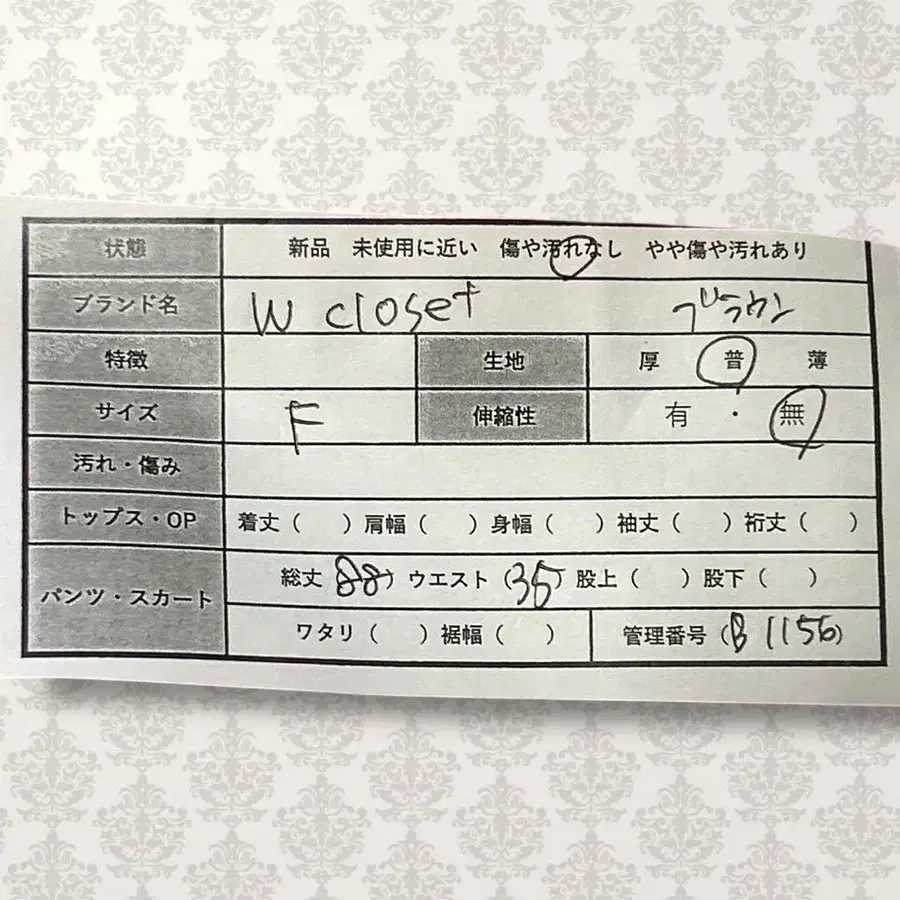 状態 新品 未使用に近い 傷や汚れなし やや傷や汚れあり
ブランド名 W closet ブラウン
特徴 生地 厚 普 薄
サイズ F 伸縮性 有 ・ 無
汚れ・傷み
トップス・OP 着丈( ) 肩幅( ) 身幅( ) 袖丈( ) 裄丈( )
パンツ・スカート 総丈(88) ウエスト(35) 股上( ) 股下( )
ワタリ( ) 裾幅( ) 管理番号(B 1156)